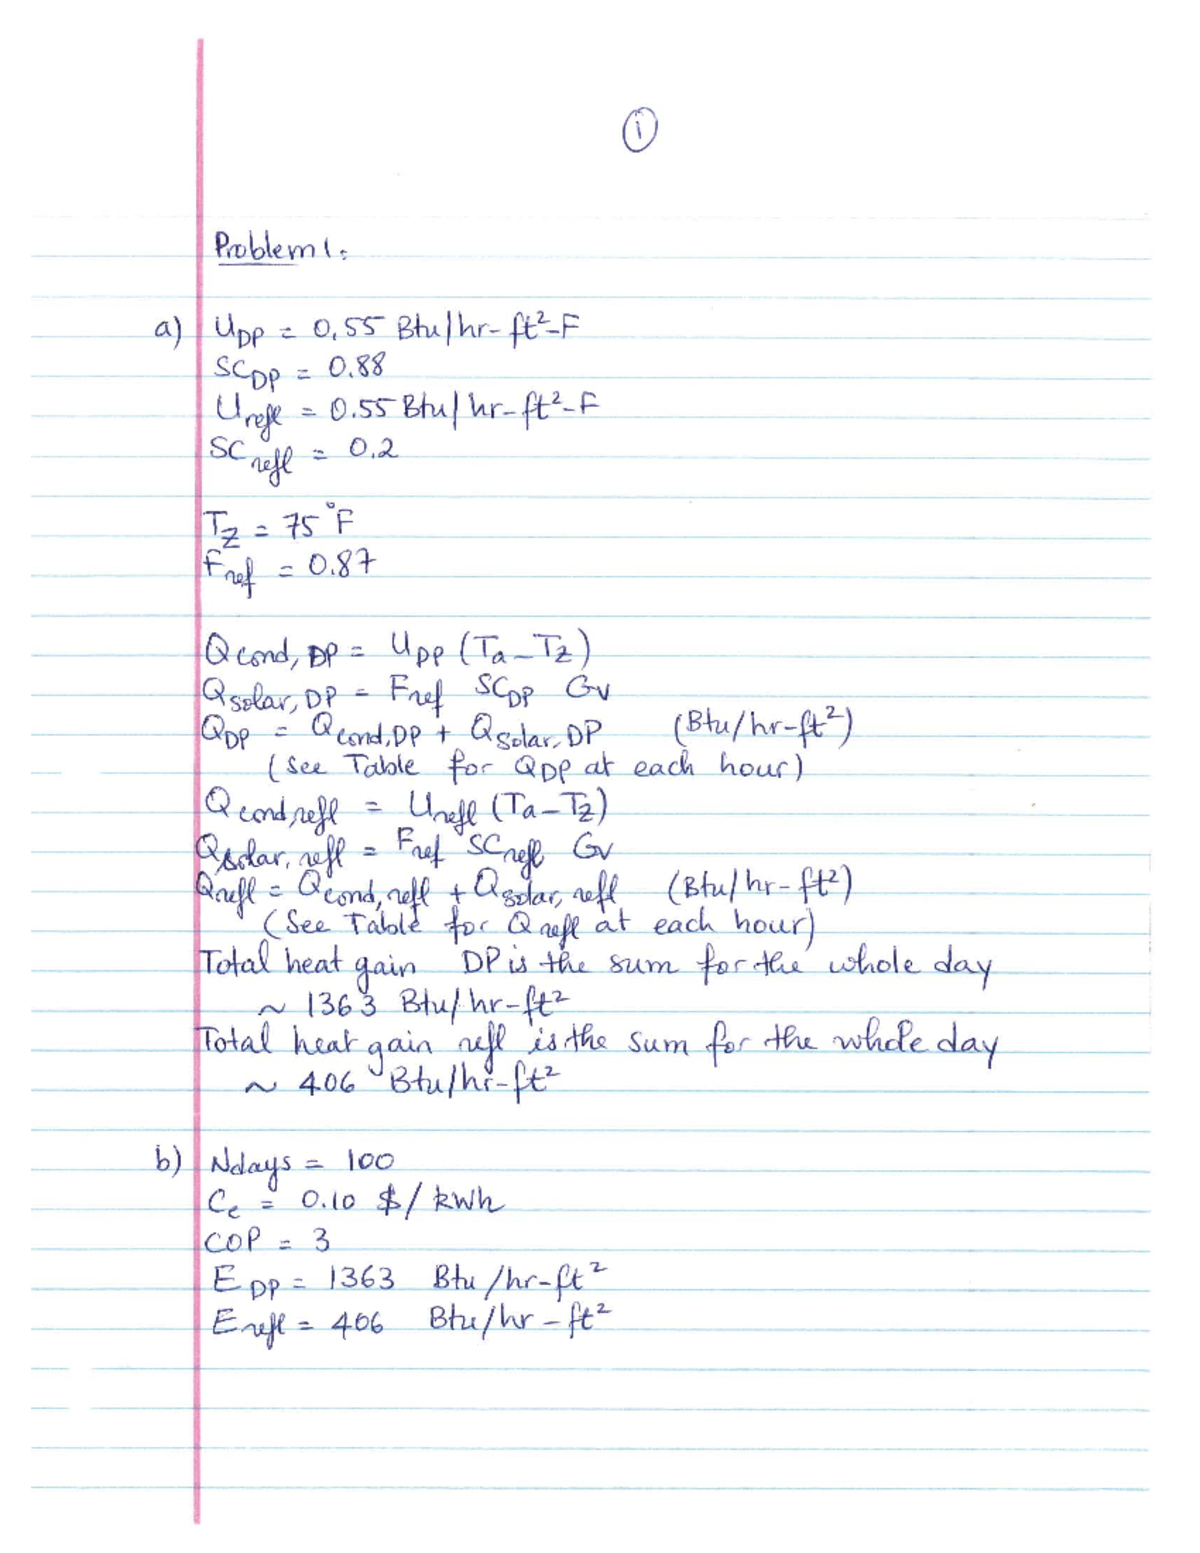 1
Problem 1:
a) U_DP = 0.55 Btu/hr-ft²-F
SC_DP = 0.88
U_refl = 0.55 Btu/hr-ft²-F
SC_refl = 0.2
T_Z = 75°F
F_ref = 0.87
Q_cond, DP = U_DP (Ta - Tz)
Q_solar, DP = F_ref SC_DP Gv
Q_DP = Q_cond,DP + Q_solar, DP (Btu/hr-ft²)
(See Table for Q_DP at each hour)
Q_cond,refl = U_refl (Ta - Tz)
Q_solar, refl = F_ref SC_refl Gv
Q_refl = Q_cond, refl + Q_solar, refl (Btu/hr-ft²)
(See Table for Q_refl at each hour)
Total heat gain DP is the sum for the whole day
~ 1363 Btu/hr-ft²
Total heat gain refl is the sum for the whole day
~ 406 Btu/hr-ft²
b) Ndays = 100
C_e = 0.10 $/kWh
COP = 3
E_DP = 1363 Btu/hr-ft²
E_refl = 406 Btu/hr-ft²